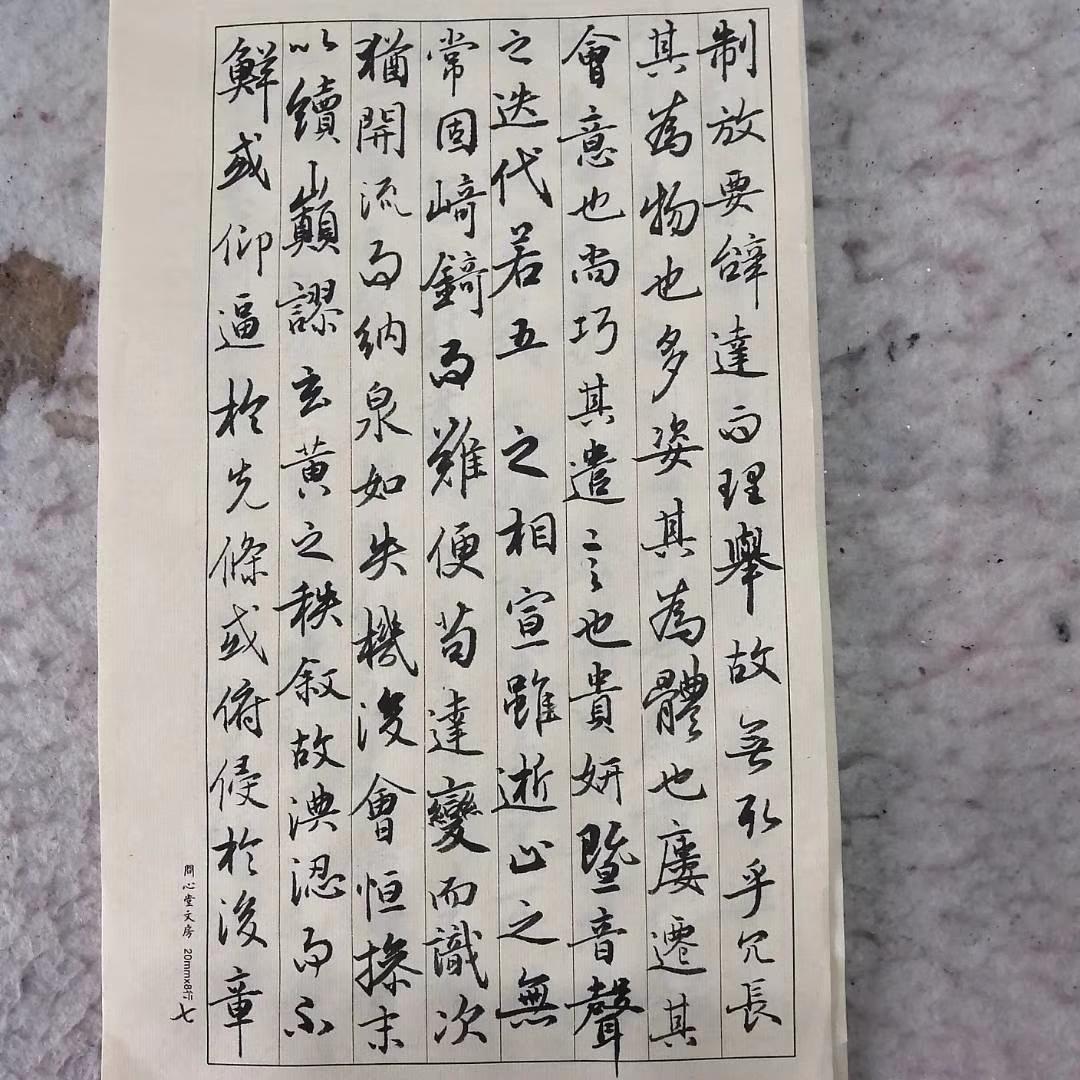 制放要辭達而理舉故無取乎冗長
其為物也多姿其為體也屢遷其
會意也尚巧其遣言也貴妍暨音聲
之迭代若五之相宣雖逝止之無
常固崎錡而難便苟達變而識次
猶開流而納泉如失機後會恒操末
以續巔謬玄黃之秩叙故淟涊而不
鮮或仰逼於先條或俯侵於後章
問心堂文房 20mm×8行 七